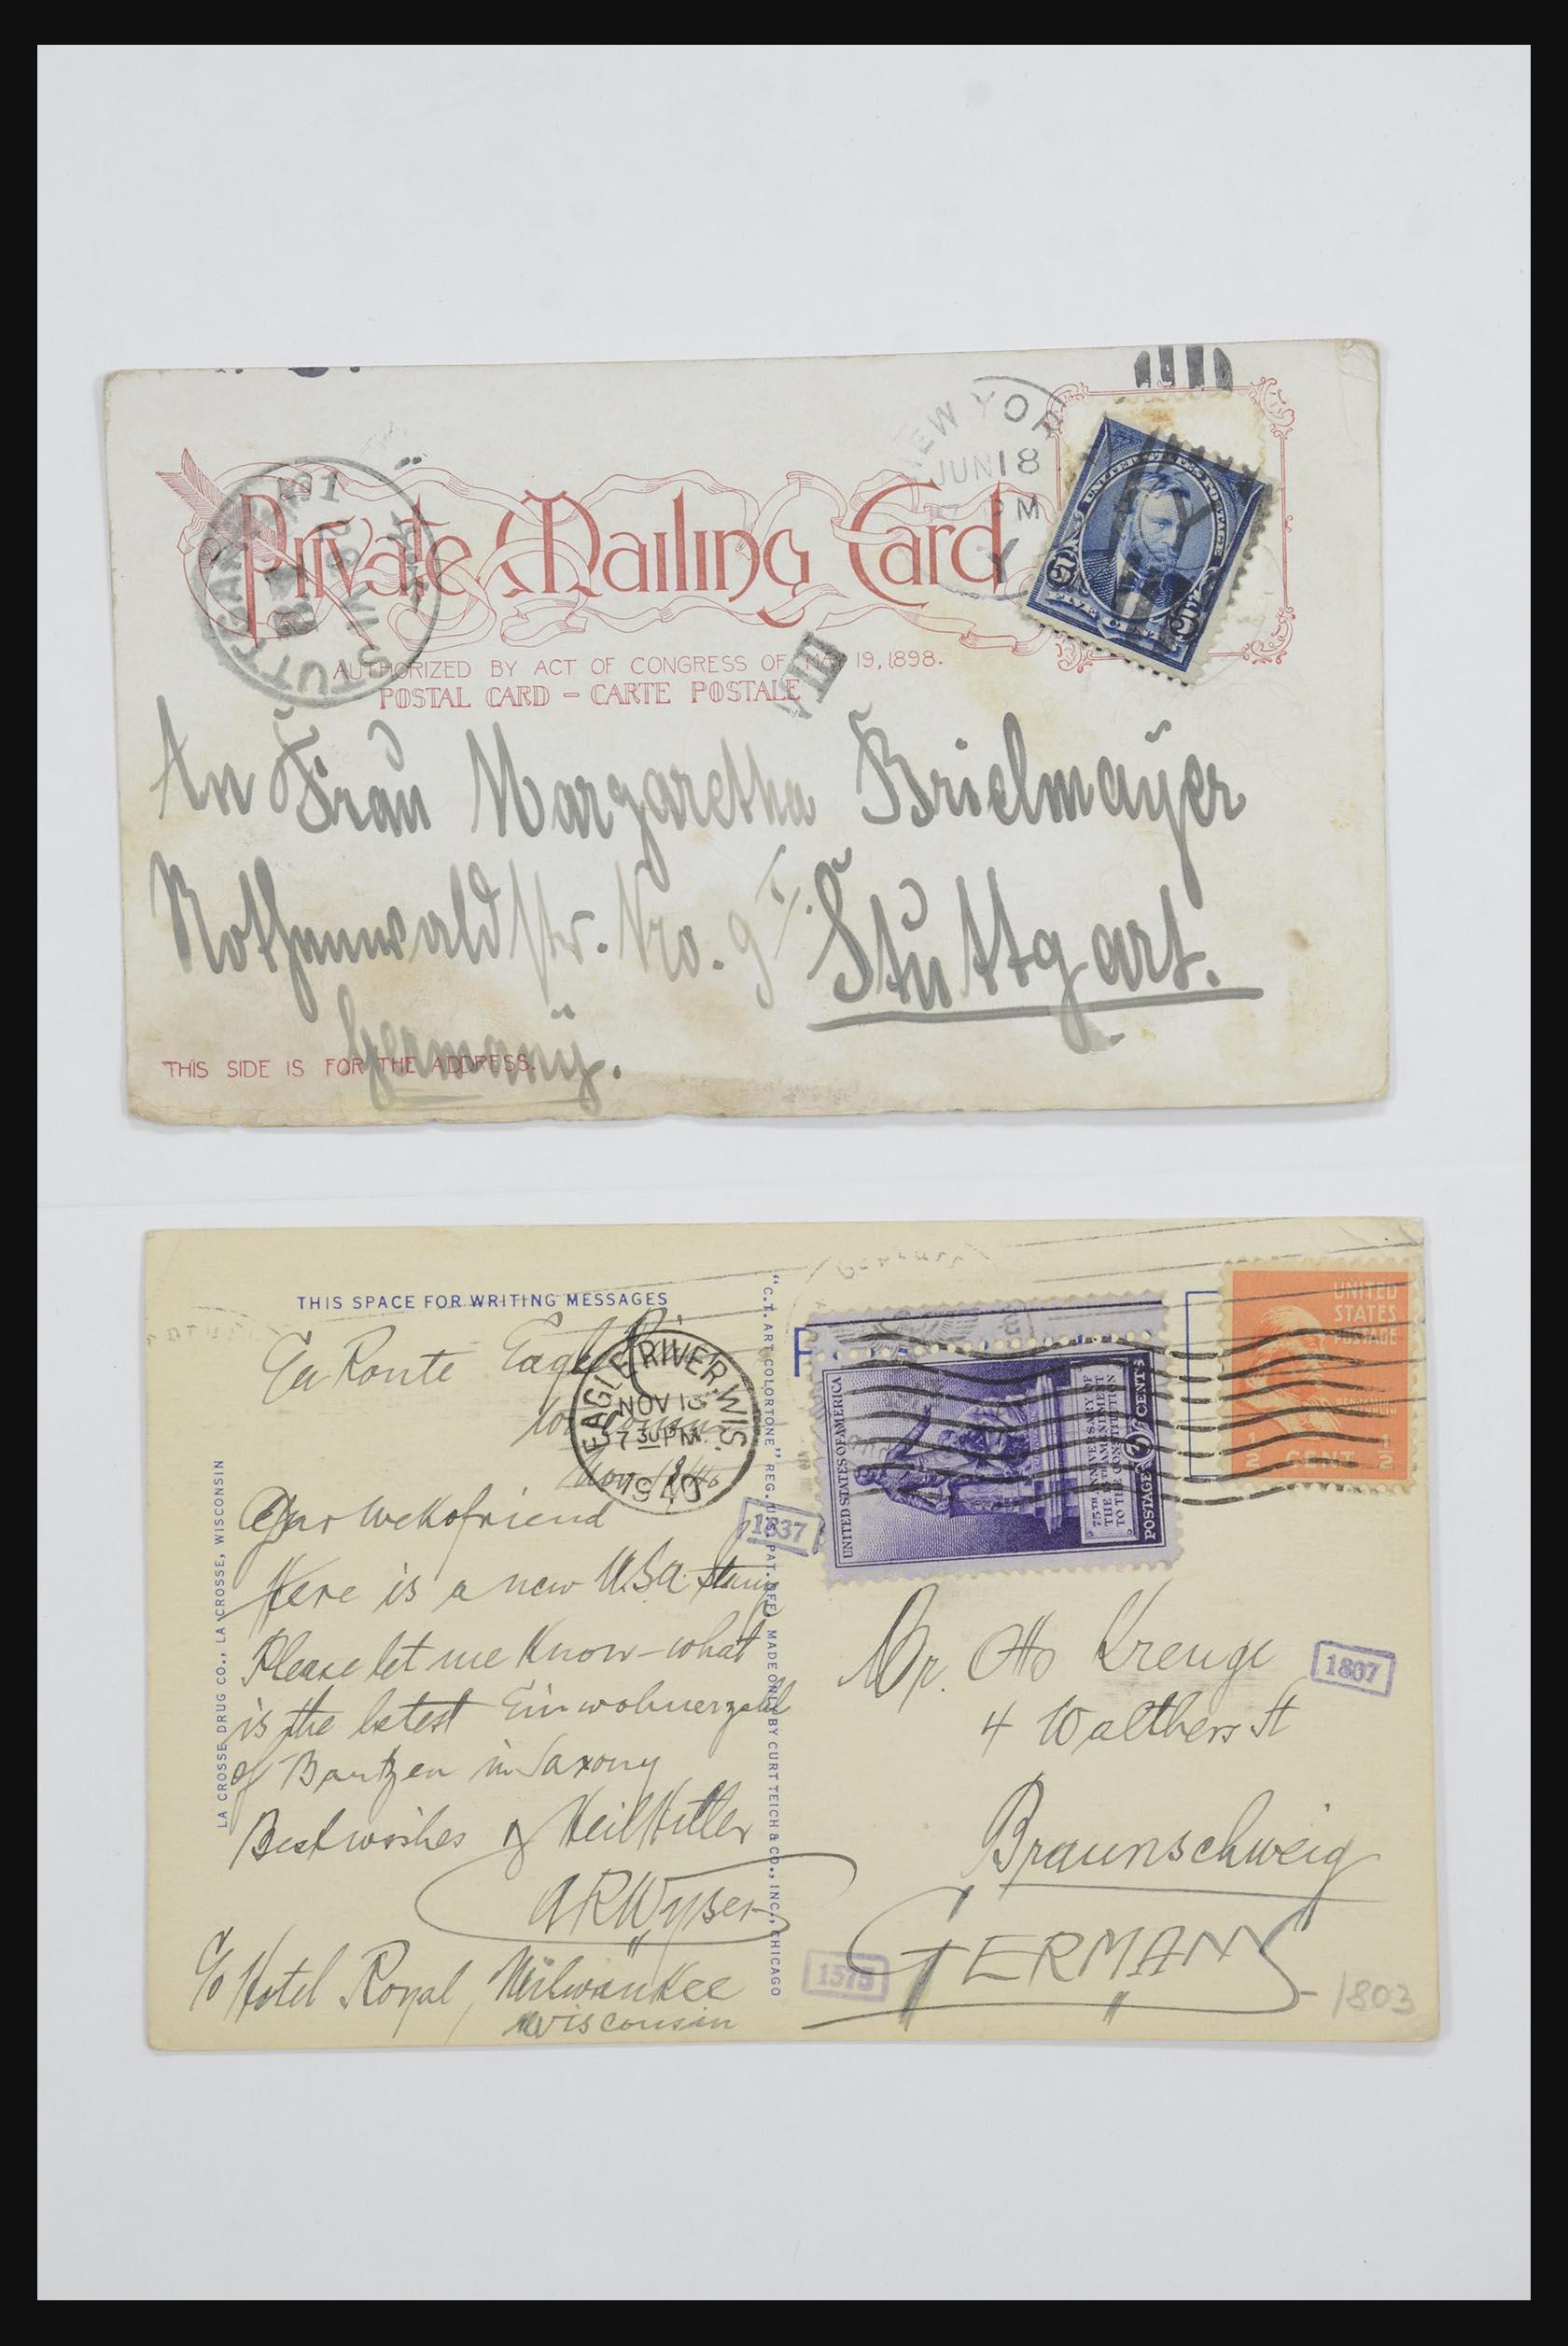 NEW YOR
JUN 18
PM
Y
UNITED STATES POSTAGE
5 5
FIVE CENTS
STUTTGART
Private Mailing Card
AUTHORIZED BY ACT OF CONGRESS OF MAY 19, 1898.
POSTAL CARD – CARTE POSTALE
An Frau Margaretha Brielmayer
Rothenwaldstr. Nro. 9 I. Stuttgart.
Germany.
THIS SIDE IS FOR THE ADDRESS.
THIS SPACE FOR WRITING MESSAGES
En Route Eagle R.
EAGLE RIVER, WIS.
NOV 18
7 30 PM
1940
Dear Wekafriend
Here is a new U.S.A. Stamp
Please let me know – what
is the latest Einwohnerzahl
of Bautzen in Saxony
Best wishes & Heil Hitler
ARWyser
c/o Hotel Royal, Milwaukee
Wisconsin
LA CROSSE DRUG CO., LA CROSSE, WISCONSIN
"C.T. ART COLORTONE" REG. U.S. PAT. OFF. MADE ONLY BY CURT TEICH & CO., INC., CHICAGO
UNITED STATES OF AMERICA
75TH ANNIVERSARY OF
THE 13TH AMENDMENT
TO THE CONSTITUTION
POSTAGE 3 CENTS
UNITED
STATES
POSTAGE
BENJAMIN
FRANKLIN
1/2 CENT 1/2
1837
Mr. Otto Krenge
1807
4 Walthers St
Braunschweig
GERMANY
1375
1803